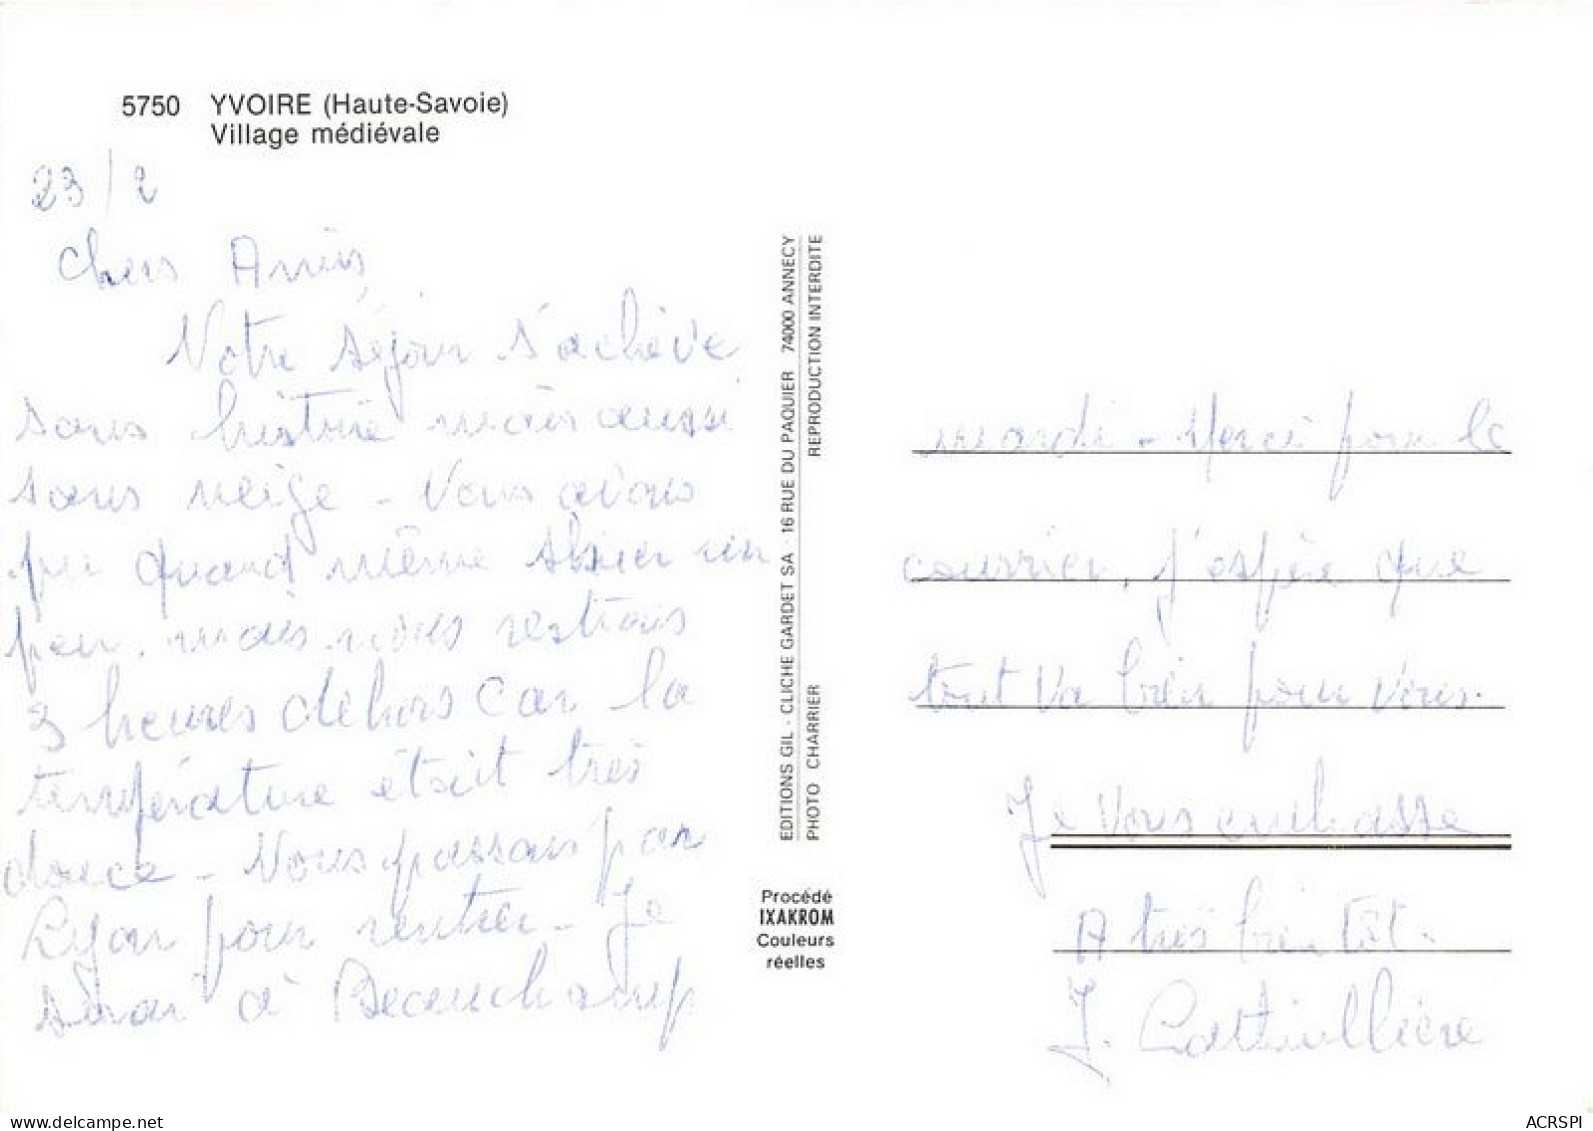 5750 YVOIRE (Haute-Savoie)
Village médiévale
23/2
Chers Amis,
Notre séjour s'achève
sans histoire mais aussi
sans neige - Nous avons
pu quand même skier un
peu. mais nous restions
3 heures dehors car la
température était très
douce - Nous passons par
Lyon pour rentrer - Je
serai à Beauchamp
EDITIONS GIL - CLICHE GARDET SA - 16 RUE DU PAQUIER 74000 ANNECY
PHOTO CHARRIER REPRODUCTION INTERDITE
Procédé
IXAKROM
Couleurs
réelles
mardi - Merci pour le
courrier, j'espère que
tout va bien pour vous.
Je vous embrasse
A très bientôt.
J.
www.delcampe.net
ACRSPI